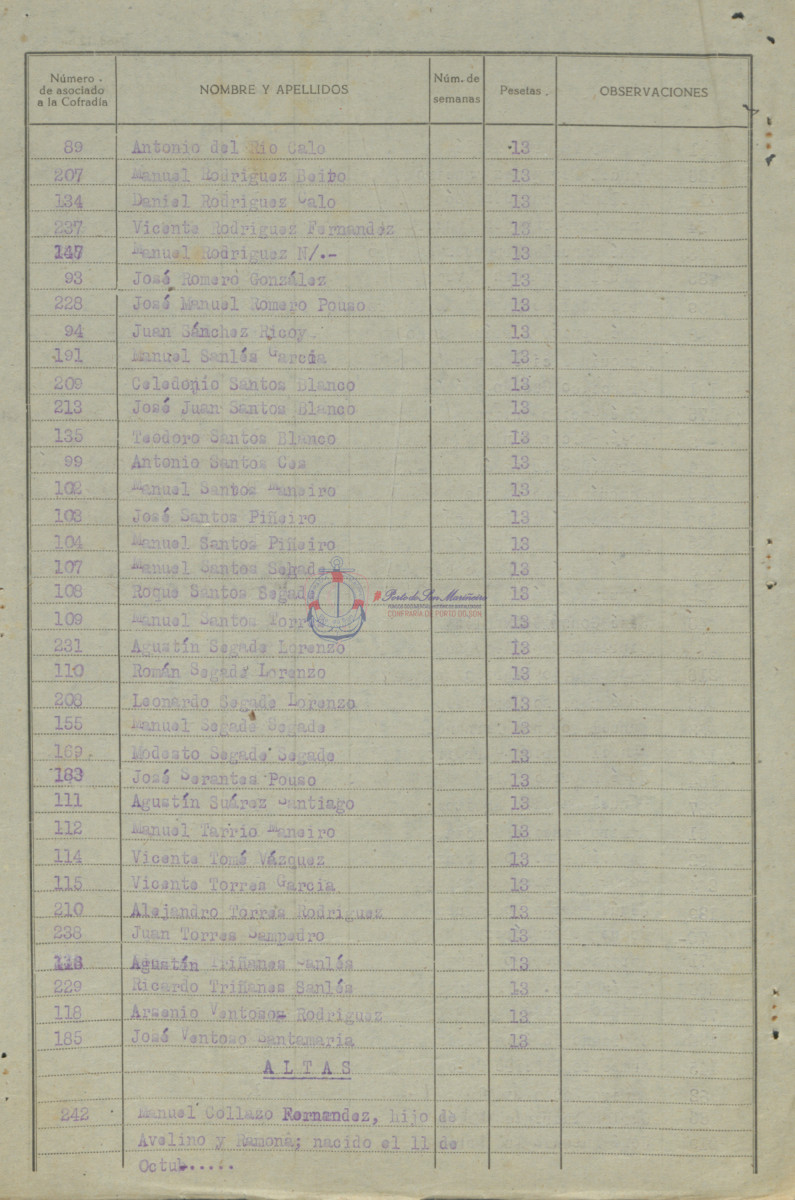 Número de asociado a la Cofradía | NOMBRE Y APELLIDOS | Núm. de semanas | Pesetas | OBSERVACIONES
89 Antonio del Rio Calo 13
207 Manuel Rodriguez Beiro 13
134 Daniel Rodriguez Calo 13
237 Vicente Rodriguez Fernandez 13
147 Manuel Rodriguez N/.- 13
93 José Romero González 13
228 José Manuel Romero Pouso 13
94 Juan Sánchez Ricoy 13
191 Manuel Sanlés Garcia 13
209 Celedonio Santos Blanco 13
213 José Juan Santos Blanco 13
135 Teodoro Santos Blanco 13
99 Antonio Santos Ces 13
102 Manuel Santos Maneiro 13
103 José Santos Piñeiro 13
104 Manuel Santos Piñeiro 13
107 Manuel Santos Segade 13
108 Roque Santos Segade 13
Porto do Son Mariñeiro
CONFRARÍA DE PORTO DO SON
109 Manuel Santos Torres 13
231 Agustín Segade Lorenzo 13
110 Román Segade Lorenzo 13
208 Leonardo Segade Lorenzo 13
155 Manuel Segade Segade 13
169 Modesto Segade Segade 13
183 José Serantes Pouso 13
111 Agustín Suárez Santiago 13
112 Manuel Tarrio Maneiro 13
114 Vicente Tomé Vázquez 13
115 Vicente Torres Garcia 13
210 Alejandro Torres Rodriguez 13
238 Juan Torres Sampedro 13
Agustín Triñanes Sanlés 13
229 Ricardo Triñanes Sanlés 13
118 Arsenio Ventoso Rodriguez 13
185 José Ventoso Santamaria 13
ALTAS
242 Manuel Collazo Fernandez, hijo de
Avelino y Ramona; nacido el 11 de
Octub.....